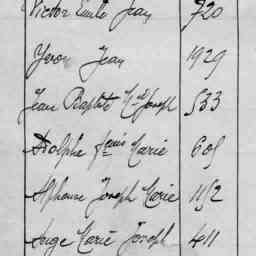 Victor Emile Jean 720
Yvon Jean 1929
Jean Baptiste Mie Joseph 533
Adolphe Louis Marie 605
Alphonse Joseph Marie 1152
Ange Marie Joseph 411